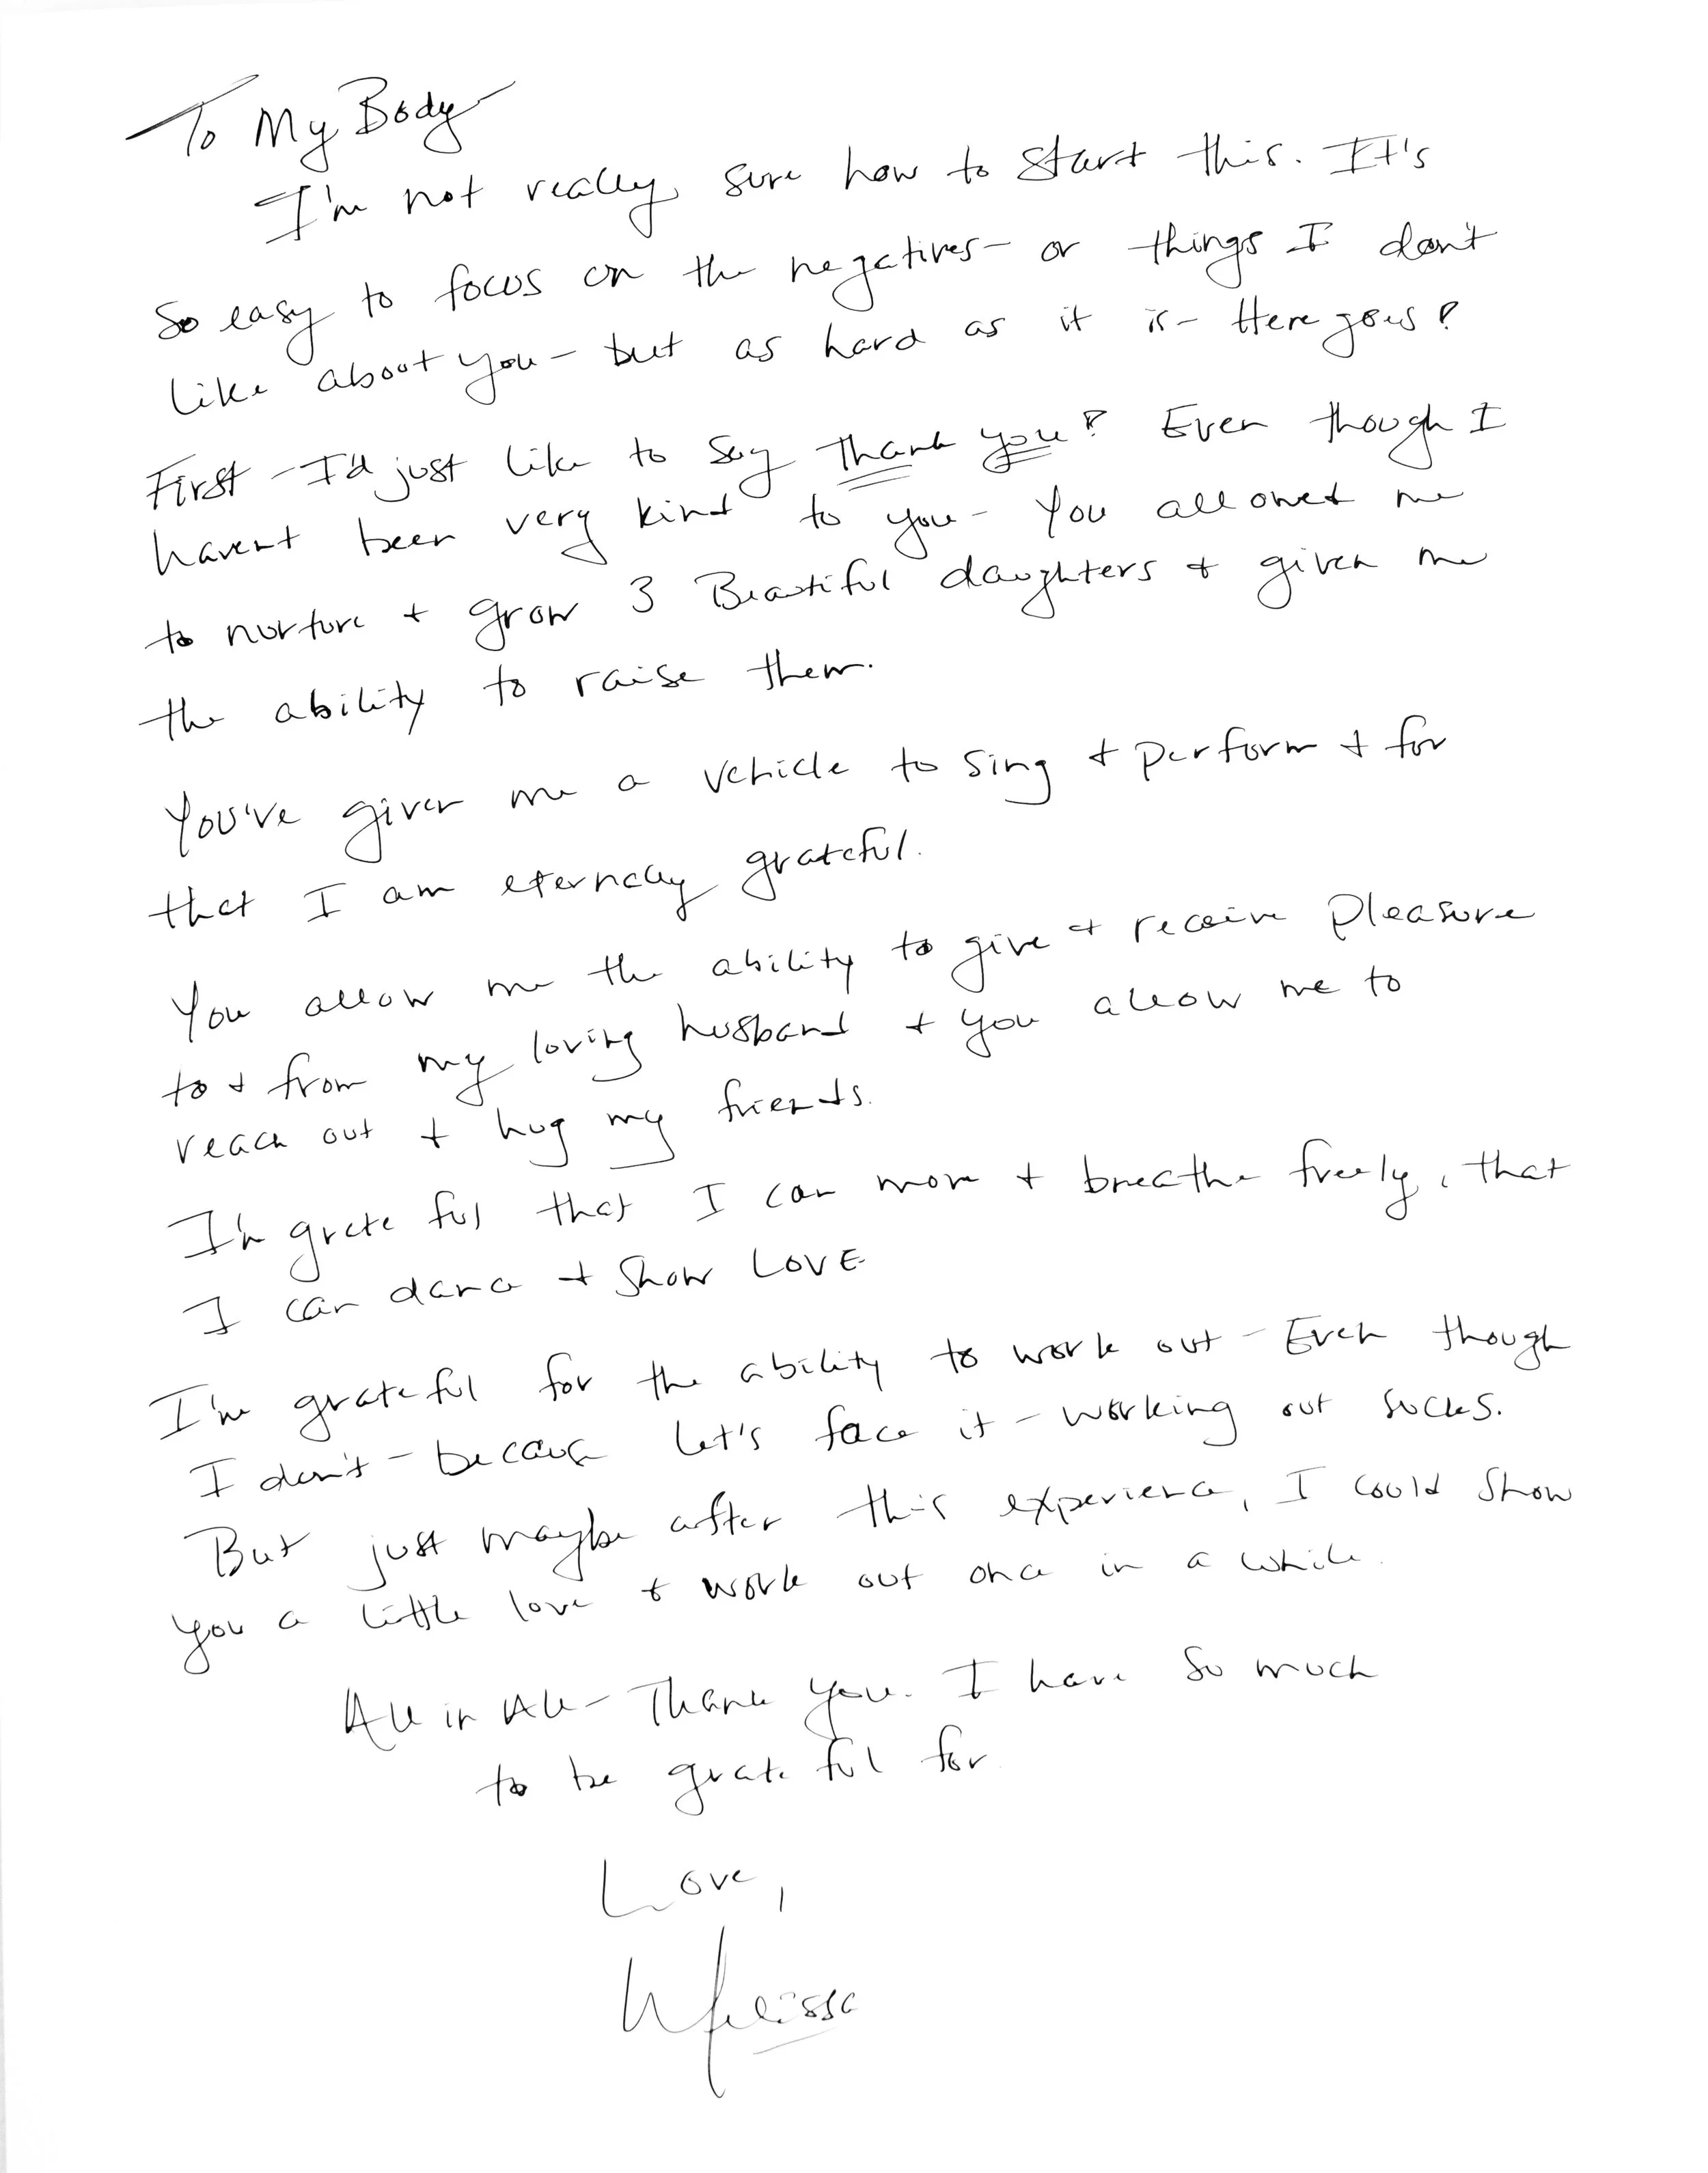 To My Body
I'm not really sure how to start this. It's
so easy to focus on the negatives - or things I don't
like about you - but as hard as it is - Here goes!
First - I'd just like to say thank you! Even though I
haven't been very kind to you - You allowed me
to nurture + grow 3 Beautiful daughters + given me
the ability to raise them.
You've given me a vehicle to sing + perform + for
that I am eternally grateful.
You allow me the ability to give + receive pleasure
to + from my loving husband + you allow me to
reach out + hug my friends.
I'm grateful that I can move + breathe freely, that
I can dance + show LOVE
I'm grateful for the ability to work out - Even though
I don't - because let's face it - working out sucks.
But just maybe after this experience, I could show
you a little love + work out once in a while.
All in All - Thank you. I have so much
to be grateful for
Love,
Melissa